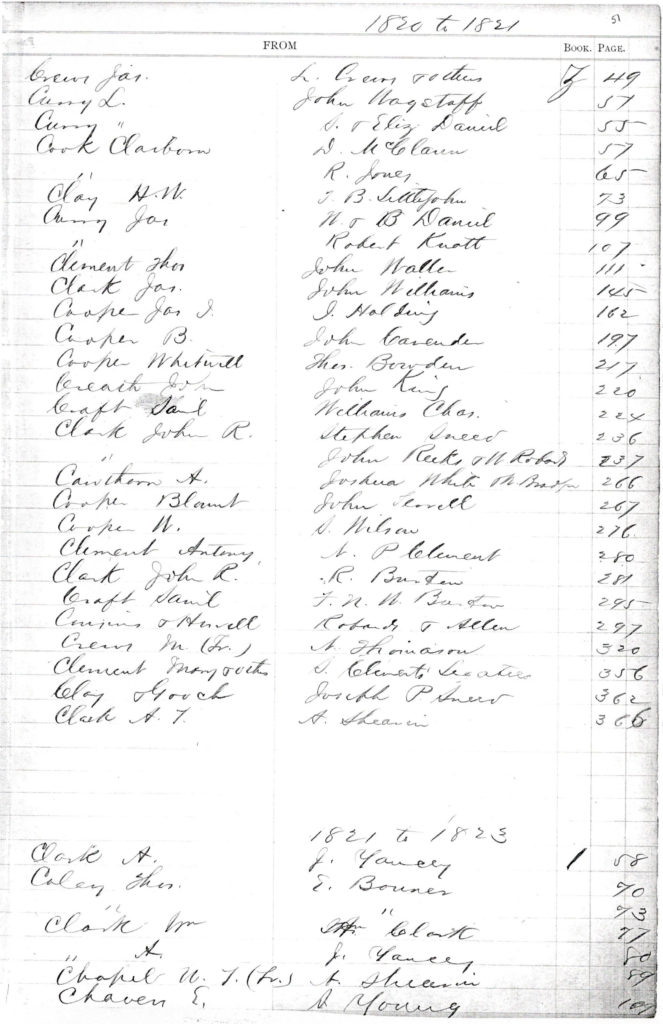 51
1820 to 1821
FROM BOOK. PAGE.
Crews Jas. L. Crews & others Z 49
Curry L. John Wagstaff 51
Curry " S. & Eliz Daniel 55
Cook Claiborn D. McClann 57
" R. Jones 65
Clay H.W. T. B. Littlejohn 73
Curry Jas W. & B Daniel 99
" Robert Knott 107
Clement Thos John Waller 111
Clark Jas. John Williams 145
Cooper Jas J. I. Holding 162
Cooper B. John Cavender 197
Cooper Whitwill Thos. Bowden 217
Creath John John King 220
Craft Saml Williams Chas. 224
Clark John R. Stephen Sneed 236
" John Reeks & W Robards 237
Cawthorn A. Joshua White 266
Cooper Blount John Terrell 267
Cooper W. S. Wilson 276
Clement Antony N. P Clement 280
Clark John R. R. Burton 281
Craft Samil F. N. W. Burton 295
Cousins & Howell Robards & Allen 297
Crews M. (Tr.) N. Thomason 320
Clement Mary & others S. Clements 356
Clay & Gooch Joseph P. Sneed 362
Clark A. T. A. Shearin 366
1821 to 1823
Clark A. J. Yancey 1 58
Coley Thos. E. Bonner 70
" " 73
Clark Wm Clark 77
" A. J. Yancey 80
Chapel W. T. (Tr.) A. Shearin 89
Chaven E. A Young